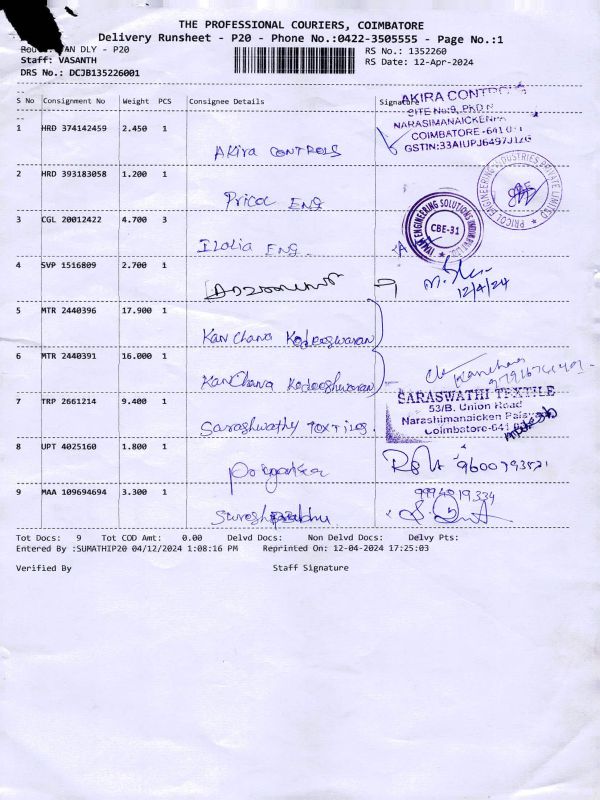 THE PROFESSIONAL COURIERS, COIMBATORE
Delivery Runsheet - P20 - Phone No.:0422-3505555 - Page No.:1
VAN DLY - P20 RS No.: 1352260
Staff: VASANTH RS Date: 12-Apr-2024
DRS No.: DCJB135226001
S No Consignment No Weight PCS Consignee Details Signature
AKIRA CONTROLS
NARASIMANAICKENPA
COIMBATORE-641
GSTIN:33AIUPJ6497J1ZG
1 HRD 374142459 2.450 1
AKira CONTROLS
2 HRD 393183058 1.200 1
Pricol ENG
PRICOL ENGINEERING INDUSTRIES PRIVATE LIMITED
3 CGL 20012422 4.700 3
ENGINEERING SOLUTIONS
CBE-31
ENG.
4 SVP 1516809 2.700 1
12/4/24
5 MTR 2440396 17.900 1
KanChana Kodeeshwaran
6 MTR 2440391 16.000 1
KanChana Kodeeshwaran
Kanchana
7 TRP 2661214 9.400 1
Sarashwathy TEXTILES.
SARASWATHI TEXTILE
53/B, Union Road
Narashimanaicken
Coimbatore-641
8 UPT 4025160 1.800 1
9600793521
9 MAA 109694694 3.300 1
Sureshprabhu
9994019334
Tot Docs: 9 Tot COD Amt: 0.00 Delvd Docs: Non Delvd Docs: Delvy Pts:
Entered By :SUMATHIP20 04/12/2024 1:08:16 PM Reprinted On: 12-04-2024 17:25:03
Verified By Staff Signature